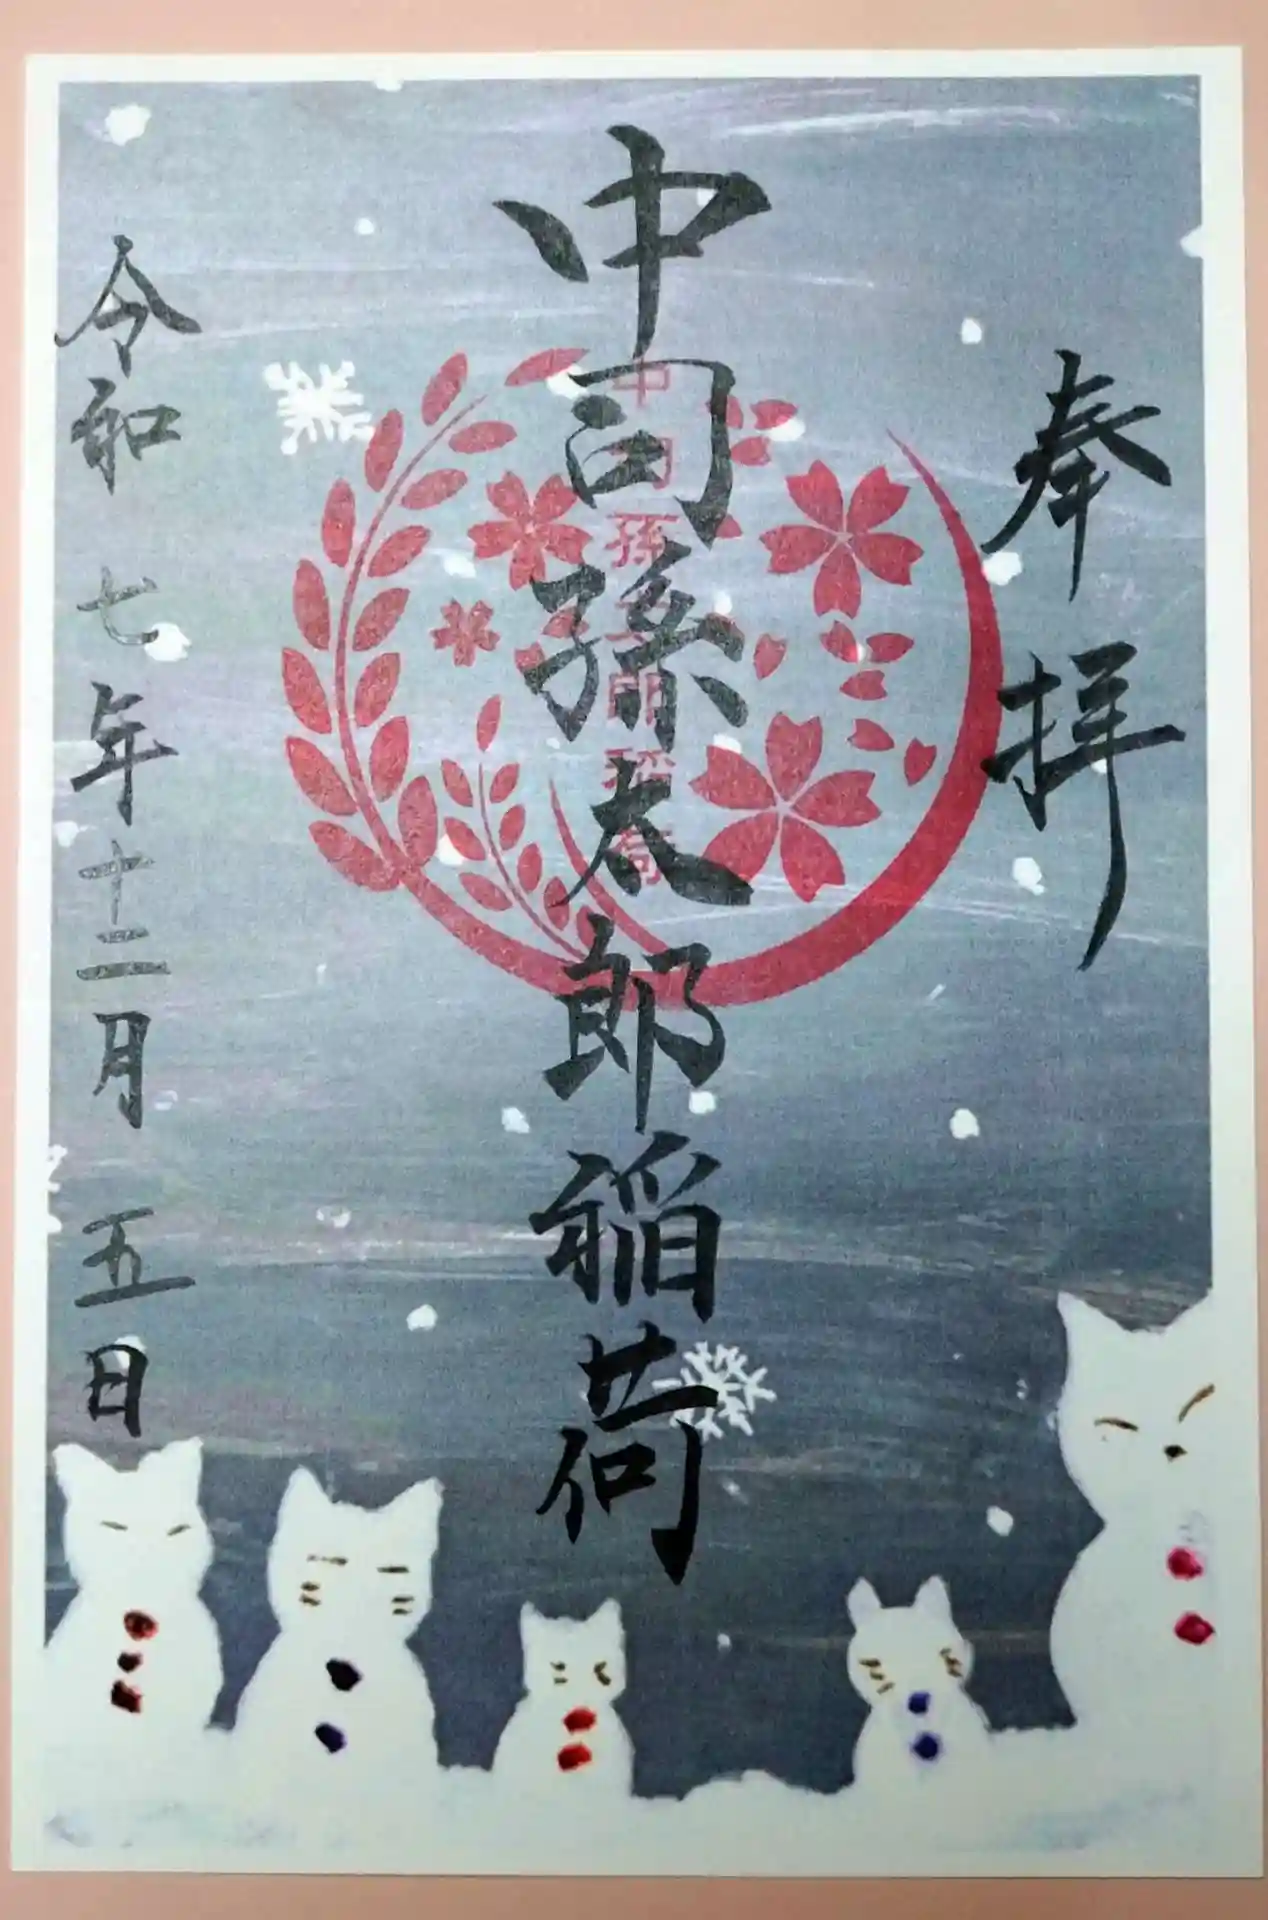 奉拝
中司孫太郎稲荷
中司孫太郎稲荷
令和七年十二月五日